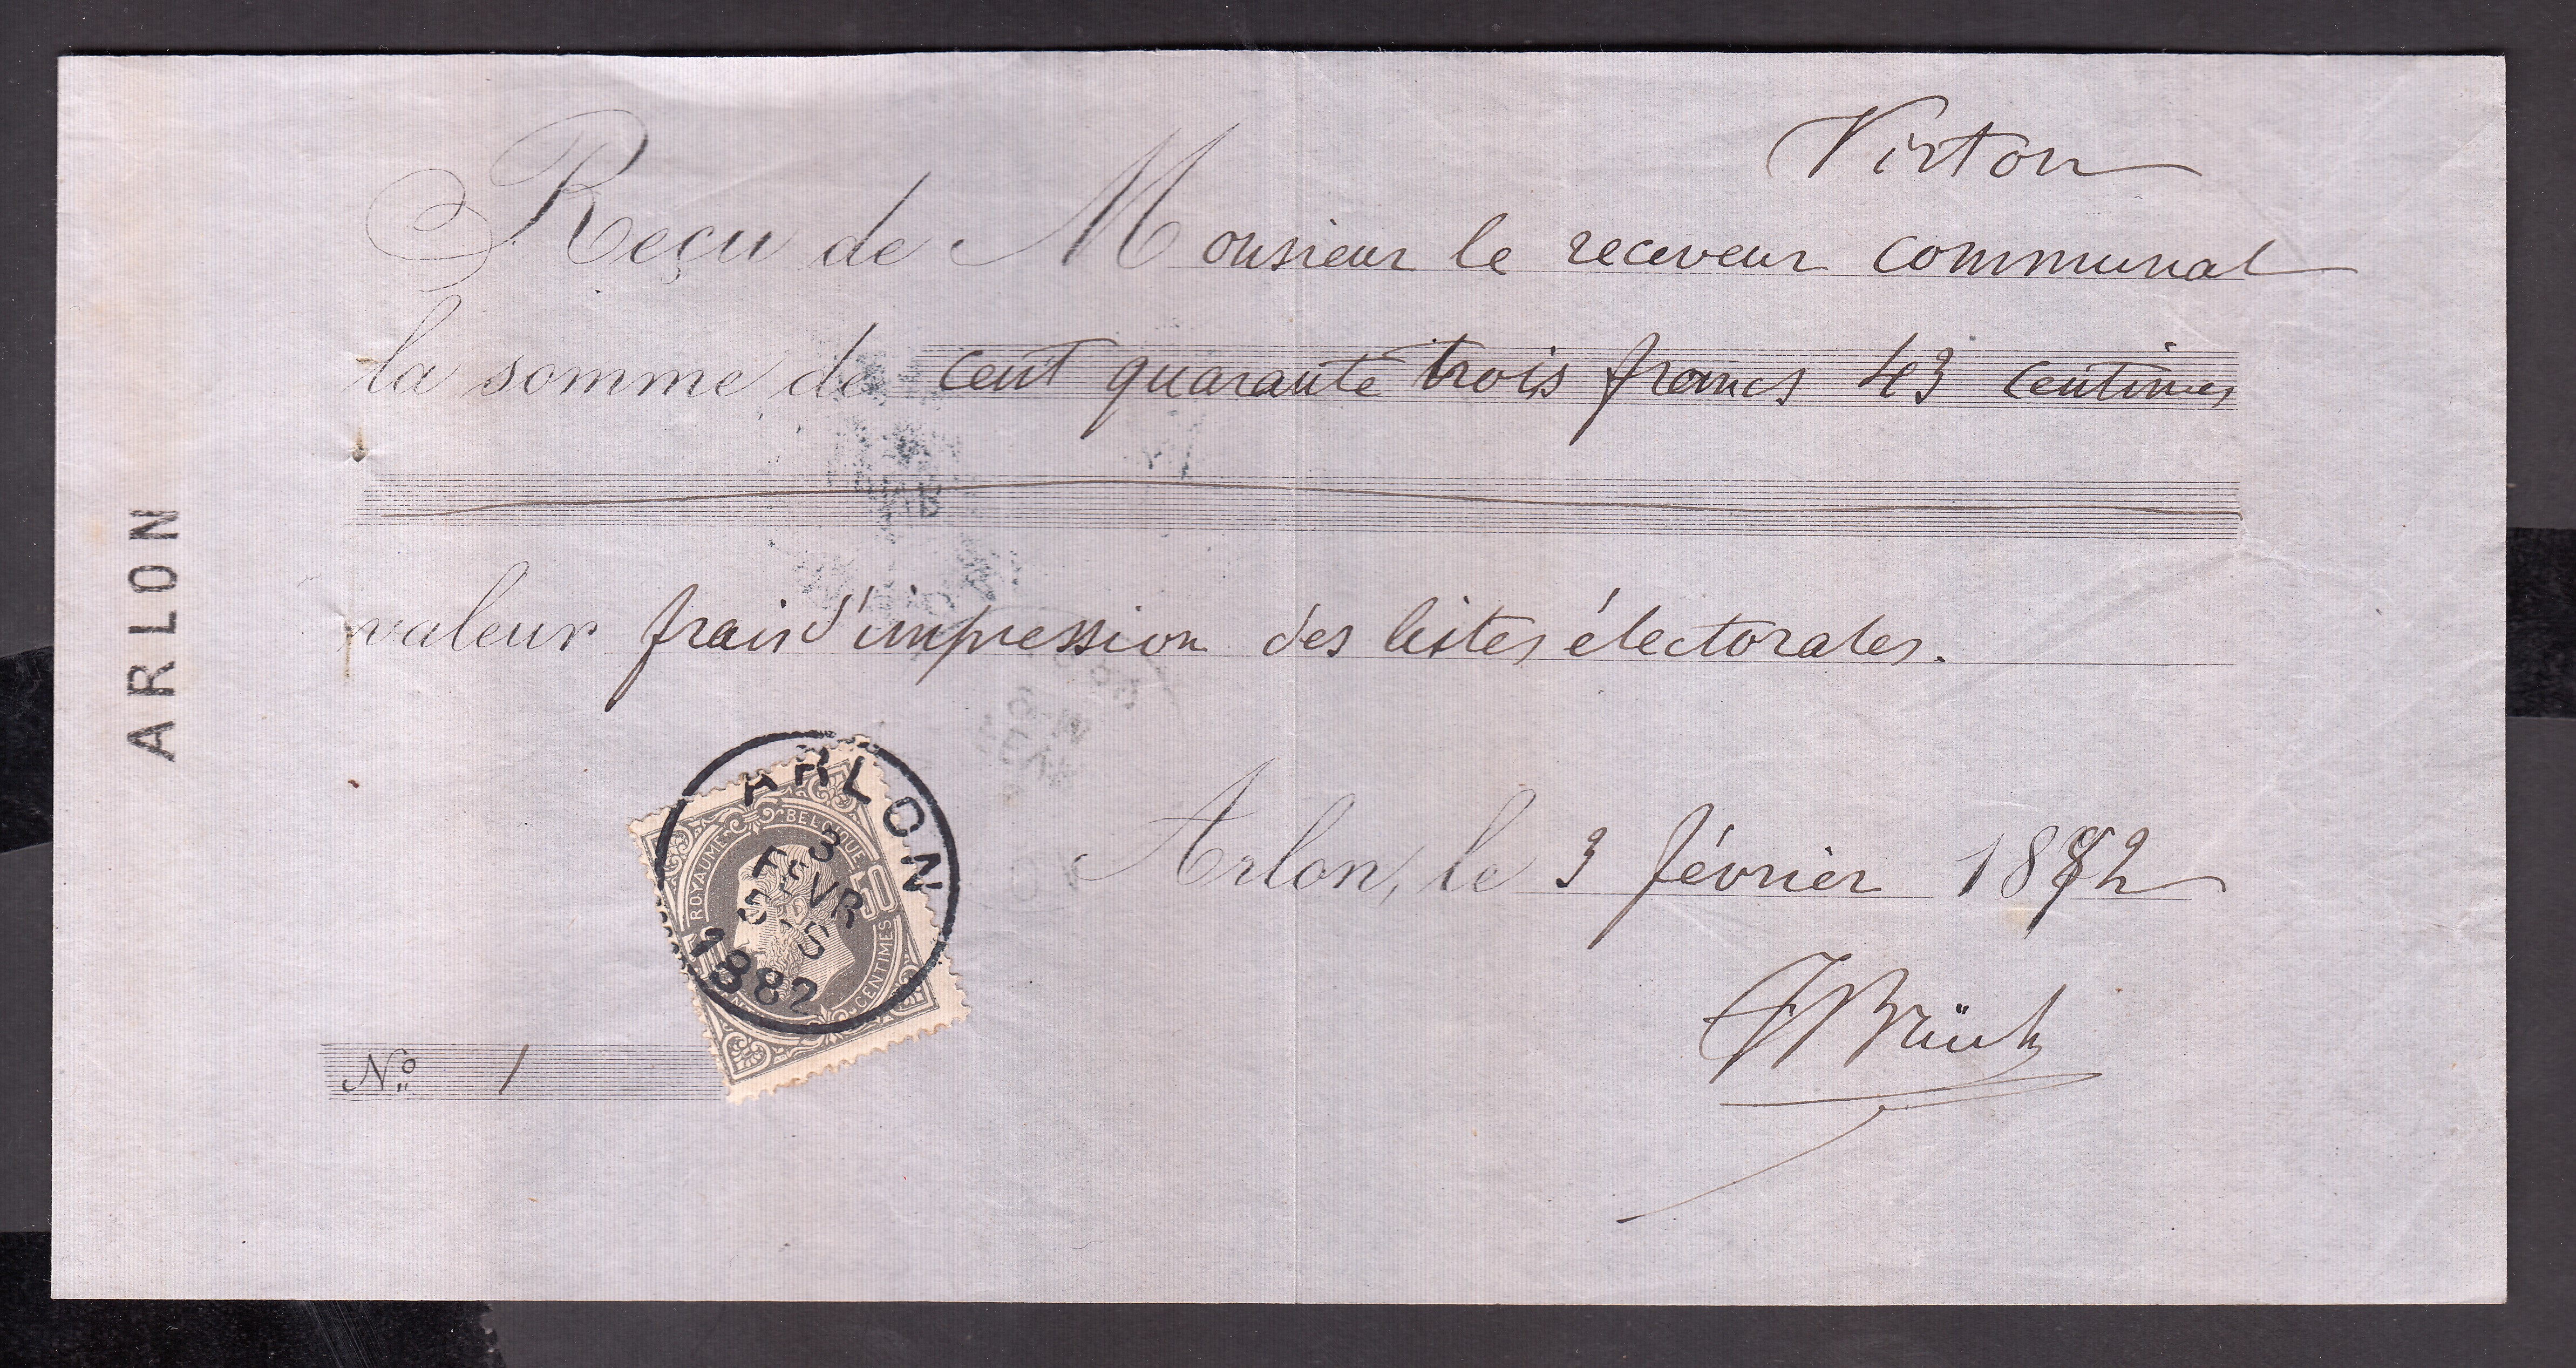 Virton
Reçu de Monsieur le receveur communal
la somme de cent quarante trois francs 43 centimes
valeur frais d'impression des listes électorales.
ARLON
ARLON
3
FEVR
5-S
1882
ROYAUME BELGIQUE
50
CENTIMES
Arlon, le 3 février 1882
Nº 1